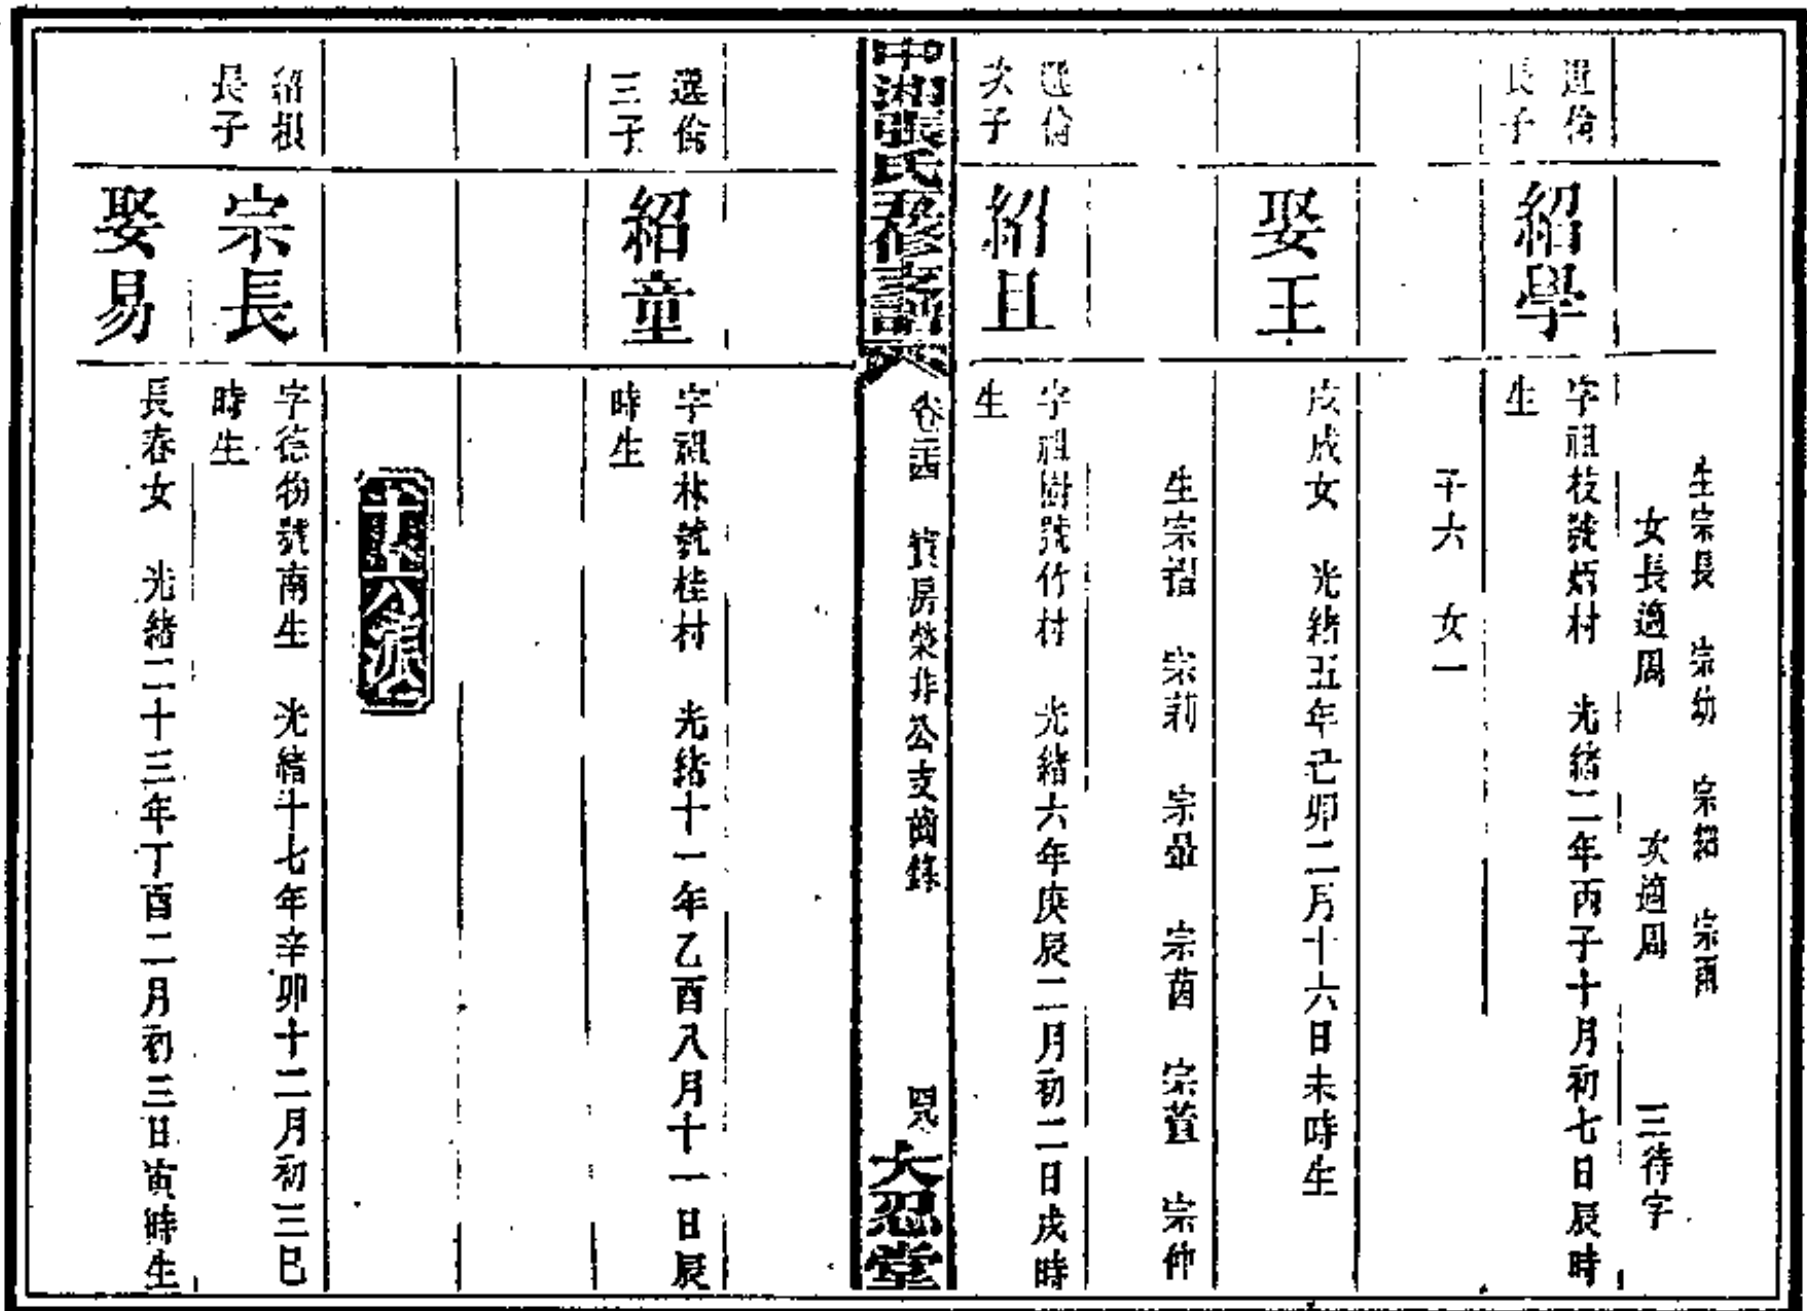 生宗長 宗幼 宗緒 宗雨
女長適周 次適周 三待字
選倫
長子
紹學
字祖枝號炳村 光緒二年丙子十月初七日辰時
生
子六 女一
娶王
茂成女 光緒五年己卯二月十六日未時生
生宗 宗莉 宗 宗茵 宗萱 宗仲
選倫
次子
紹且
字祖樹號竹村 光緒六年庚辰二月初二日戌時
生
中湘張氏 修譜 卷 房榮非公支齒錄 大忍堂
選倫
三子
紹童
字祖林號桂村 光緒十一年乙酉八月十一日辰
時生
十八派
紹根
長子
宗長
字德物號南生 光緒十七年辛卯十二月初三巳
時生
娶易
長春女 光緒二十三年丁酉二月初三日寅時生